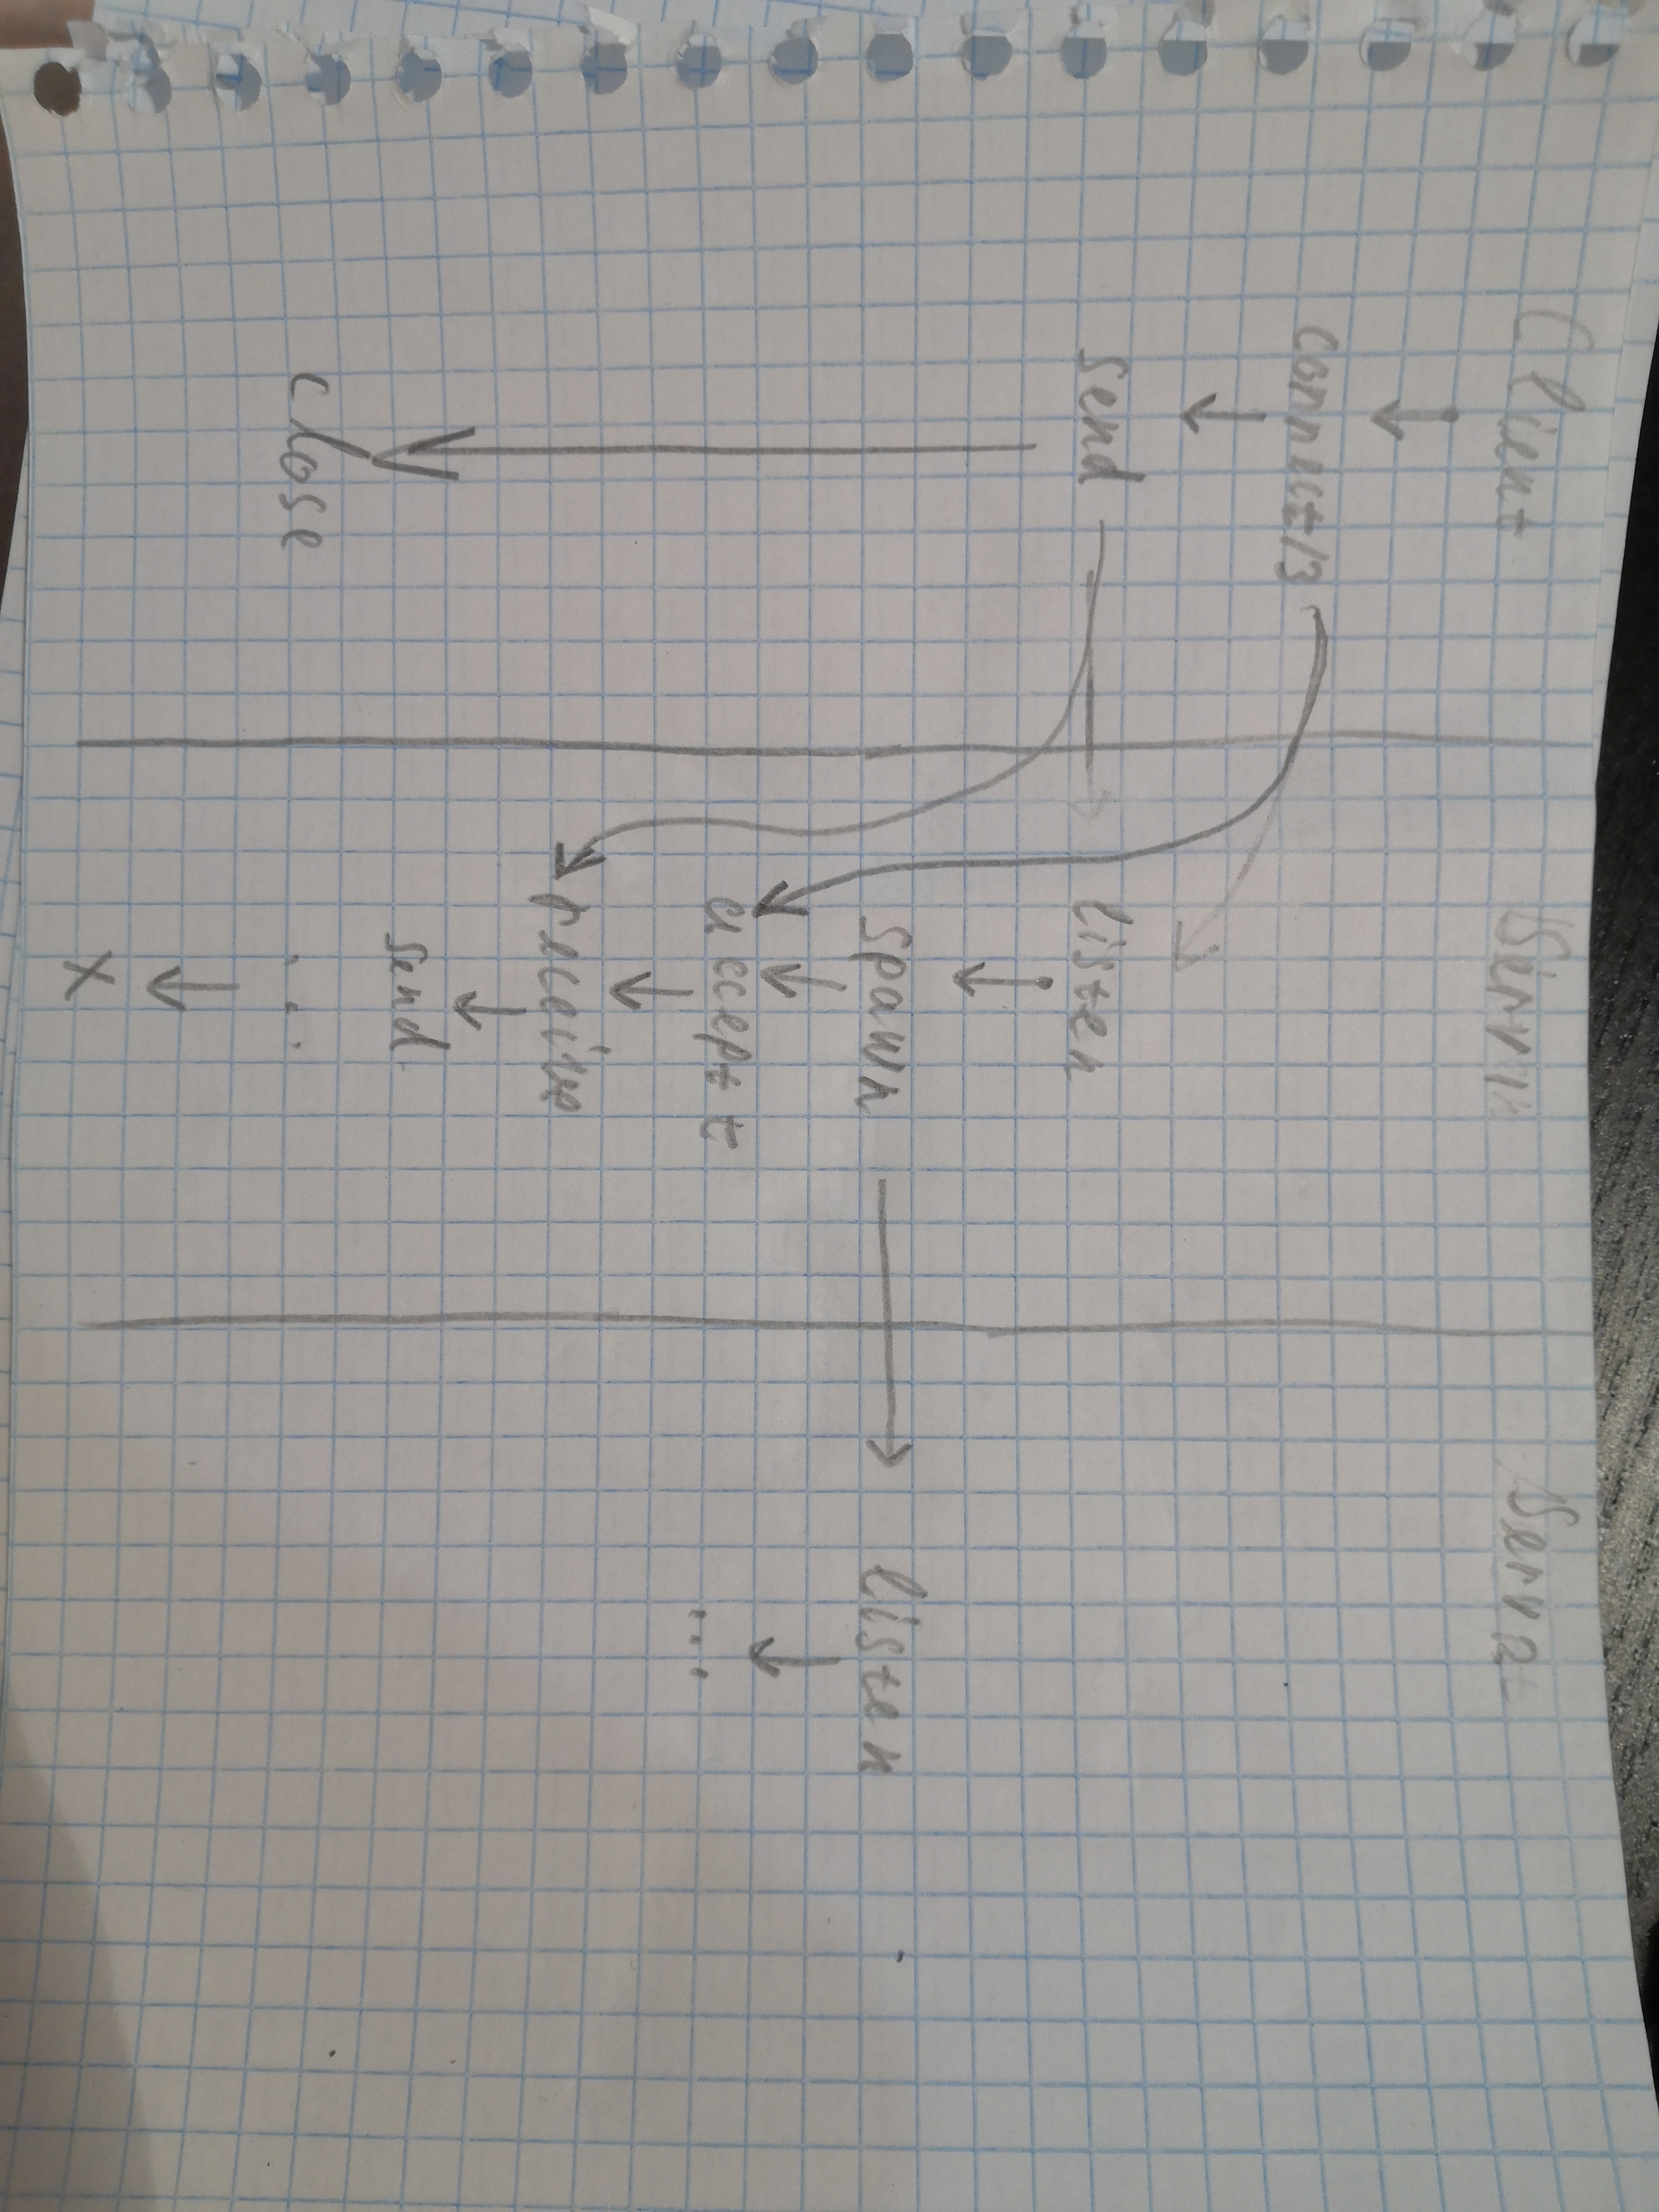 Client
connect/3
send
close
listen
spawn
accept
receive
send
...
X
listen
...